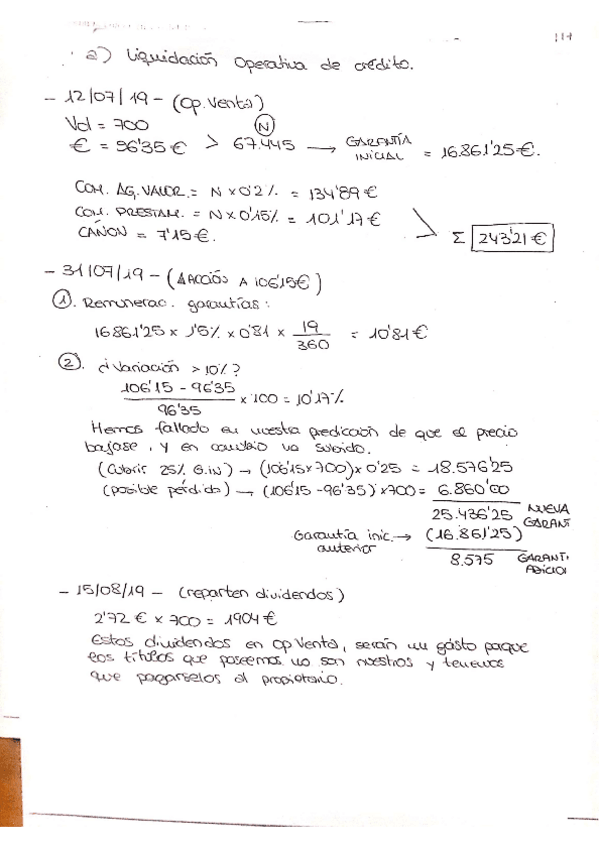 117
a) Liquidación Operativa de crédito.
- 12/07/19 - (Op. Venta)
Vol = 700
€ = 96'35 € > 67.445 (N) → GARANTÍA INICIAL = 16.861'25 €.
COM. AG. VALOR. = N x 0'2% = 134'89 €
COM. PRESTAM. = N x 0'15% = 101'17 €
CAÑON = 7'15 €.
Σ 243'21 €
- 31/07/19 - (Δ ACCIÓS A 106'15 €)
①. Remunerac. garantías:
16861'25 x 1'5% x 0'81 x 19/360 = 10'81 €
②. ¿Variación > 10%?
106'15 - 96'35 / 96'35 x 100 = 10'17%
Hemos fallado en nuestra predicción de que el precio
bajase, y en cambio ha subido.
(Cubrir 25% G.IN) → (106'15 x 700) x 0'25 = 18.576'25
(posible pérdida) → (106'15 - 96'35) x 700 = 6.860'00
25.436'25 NUEVA GARANT
Garantía inic. anterior → (16.861'25)
8.575 GARANTI. ADICIOI
- 15/08/19 - (reparten dividendos)
2'72 € x 700 = 1904 €
Estos dividendos en op Venta, serán un gasto porque
los títulos que poseemos no son nuestros y tenemos
que pagárselos al propietario.